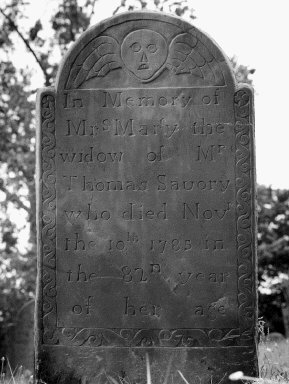 In Memory of
Mrs Mary the
widow of Mr
Thomas Savory
who died Novr
the 10th 1785 in
the 82d year
of her age